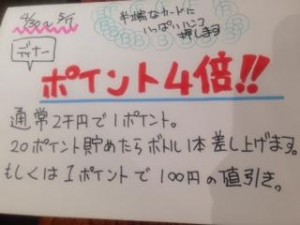 4/30と5/1
ディナー
半端なカードに
いっぱいハンコ
押します
ポイント4倍!!
通常2千円で1ポイント。
20ポイント貯めたらボトル1本差し上げます。
もしくは1ポイントで100円の値引き。